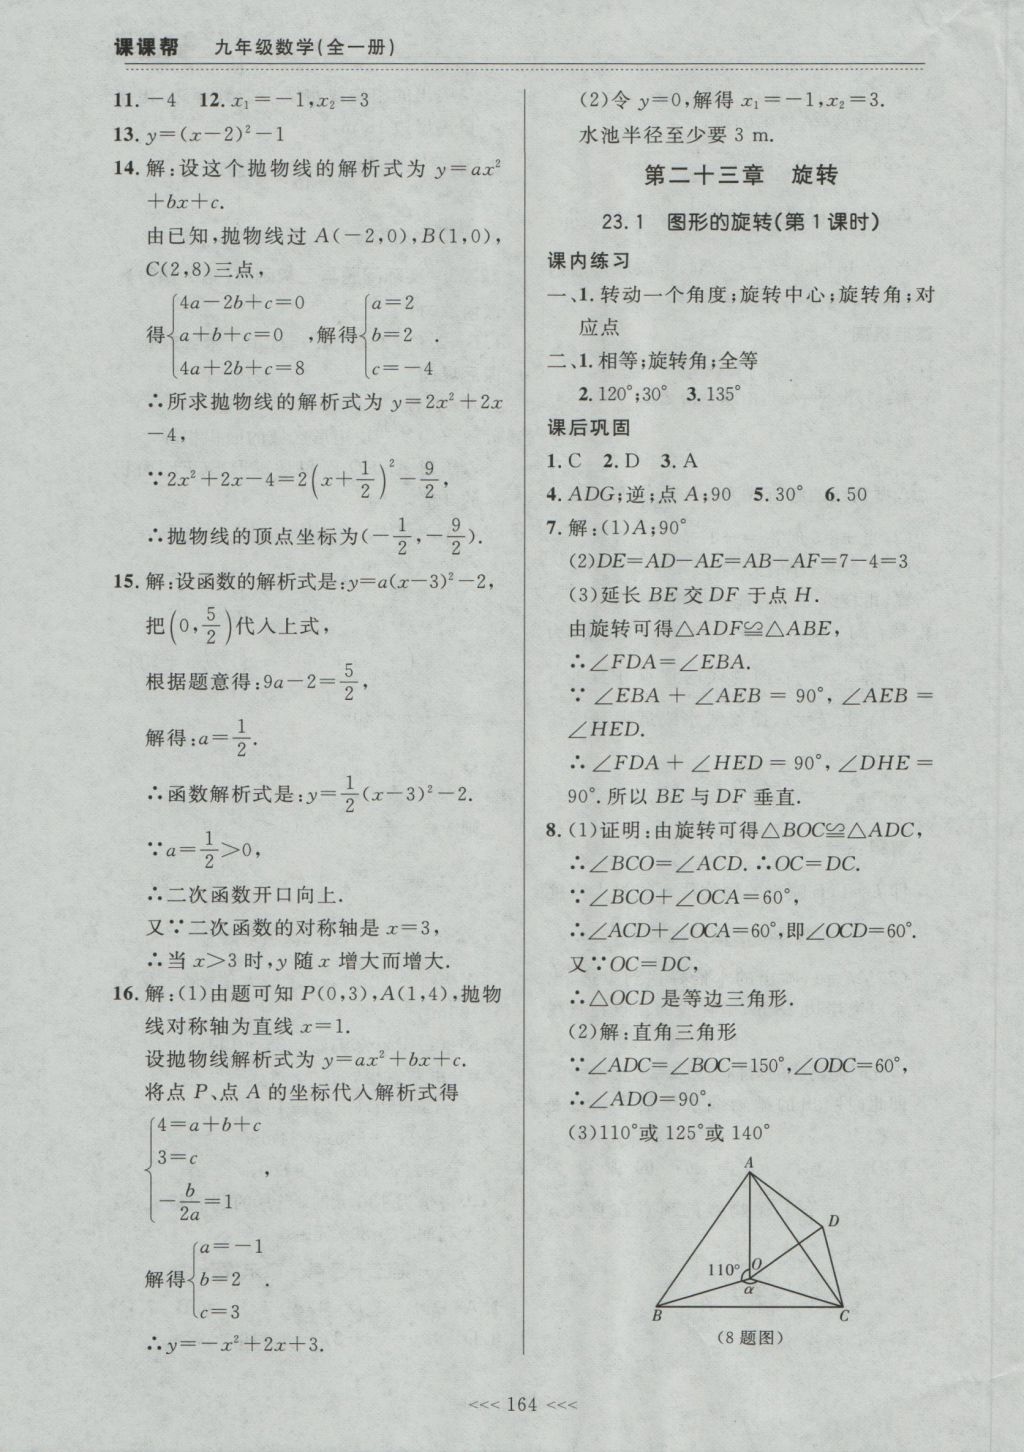 课课帮 九年级数学(全一册)
11.－4 12.x₁＝－1,x₂＝3
13.y＝(x－2)²－1
14.解:设这个抛物线的解析式为 y＝ax²
＋bx＋c.
由已知,抛物线过 A(－2,0),B(1,0),
C(2,8)三点,
得{4a－2b＋c＝0 a＋b＋c＝0 4a＋2b＋c＝8 ,解得{a＝2 b＝2 c＝－4 .
∴所求抛物线的解析式为 y＝2x²＋2x
－4,
∵2x²＋2x－4＝2(x＋1/2)²－9/2,
∴抛物线的顶点坐标为(－1/2,－9/2).
15.解:设函数的解析式是:y＝a(x－3)²－2,
把(0,5/2)代入上式,
根据题意得:9a－2＝5/2,
解得:a＝1/2.
∴函数解析式是:y＝1/2(x－3)²－2.
∵a＝1/2＞0,
∴二次函数开口向上.
又∵二次函数的对称轴是 x＝3,
∴当 x＞3 时,y 随 x 增大而增大.
16.解:(1)由题可知 P(0,3),A(1,4),抛物
线对称轴为直线 x＝1.
设抛物线解析式为 y＝ax²＋bx＋c.
将点 P、点 A 的坐标代入解析式得
{4＝a＋b＋c 3＝c －b/2a＝1 ,
解得{a＝－1 b＝2 c＝3 .
∴y＝－x²＋2x＋3.
(2)令 y＝0,解得 x₁＝－1,x₂＝3.
水池半径至少要 3 m.
第二十三章 旋转
23.1 图形的旋转(第 1 课时)
课内练习
一、1.转动一个角度;旋转中心;旋转角;对
应点
二、1.相等;旋转角;全等
2.120°;30° 3.135°
课后巩固
1.C 2.D 3.A
4.ADG;逆;点 A;90 5.30° 6.50
7.解:(1)A;90°
(2)DE＝AD－AE＝AB－AF＝7－4＝3
(3)延长 BE 交 DF 于点 H.
由旋转可得△ADF≌△ABE,
∴∠FDA＝∠EBA.
∵∠EBA＋∠AEB＝90°,∠AEB＝
∠HED.
∴∠FDA＋∠HED＝90°,∠DHE＝
90°.所以 BE 与 DF 垂直.
8.(1)证明:由旋转可得△BOC≌△ADC,
∴∠BCO＝∠ACD.∴OC＝DC.
∵∠BCO＋∠OCA＝60°,
∴∠ACD＋∠OCA＝60°,即∠OCD＝60°.
又∵OC＝DC,
∴△OCD 是等边三角形.
(2)解:直角三角形
∵∠ADC＝∠BOC＝150°,∠ODC＝60°,
∴∠ADO＝90°.
(3)110°或 125°或 140°
A
D
110° O
α
B C
(8 题图)
<<< 164 <<<